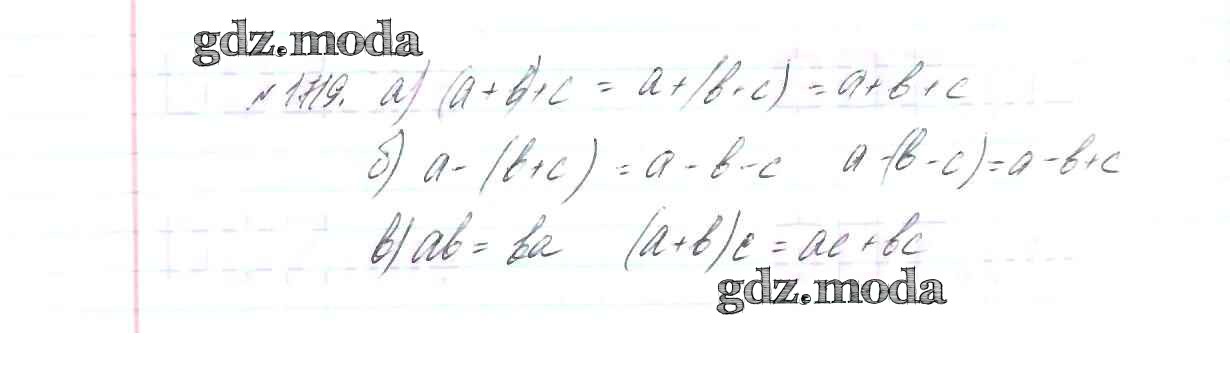 gdz.moda
№ 1719. а) (a+b)+c = a+(b+c) = a+b+c
б) a-(b+c) = a-b-c a-(b-c)=a-b+c
в) ab = ba (a+b)c = ac+bc
gdz.moda